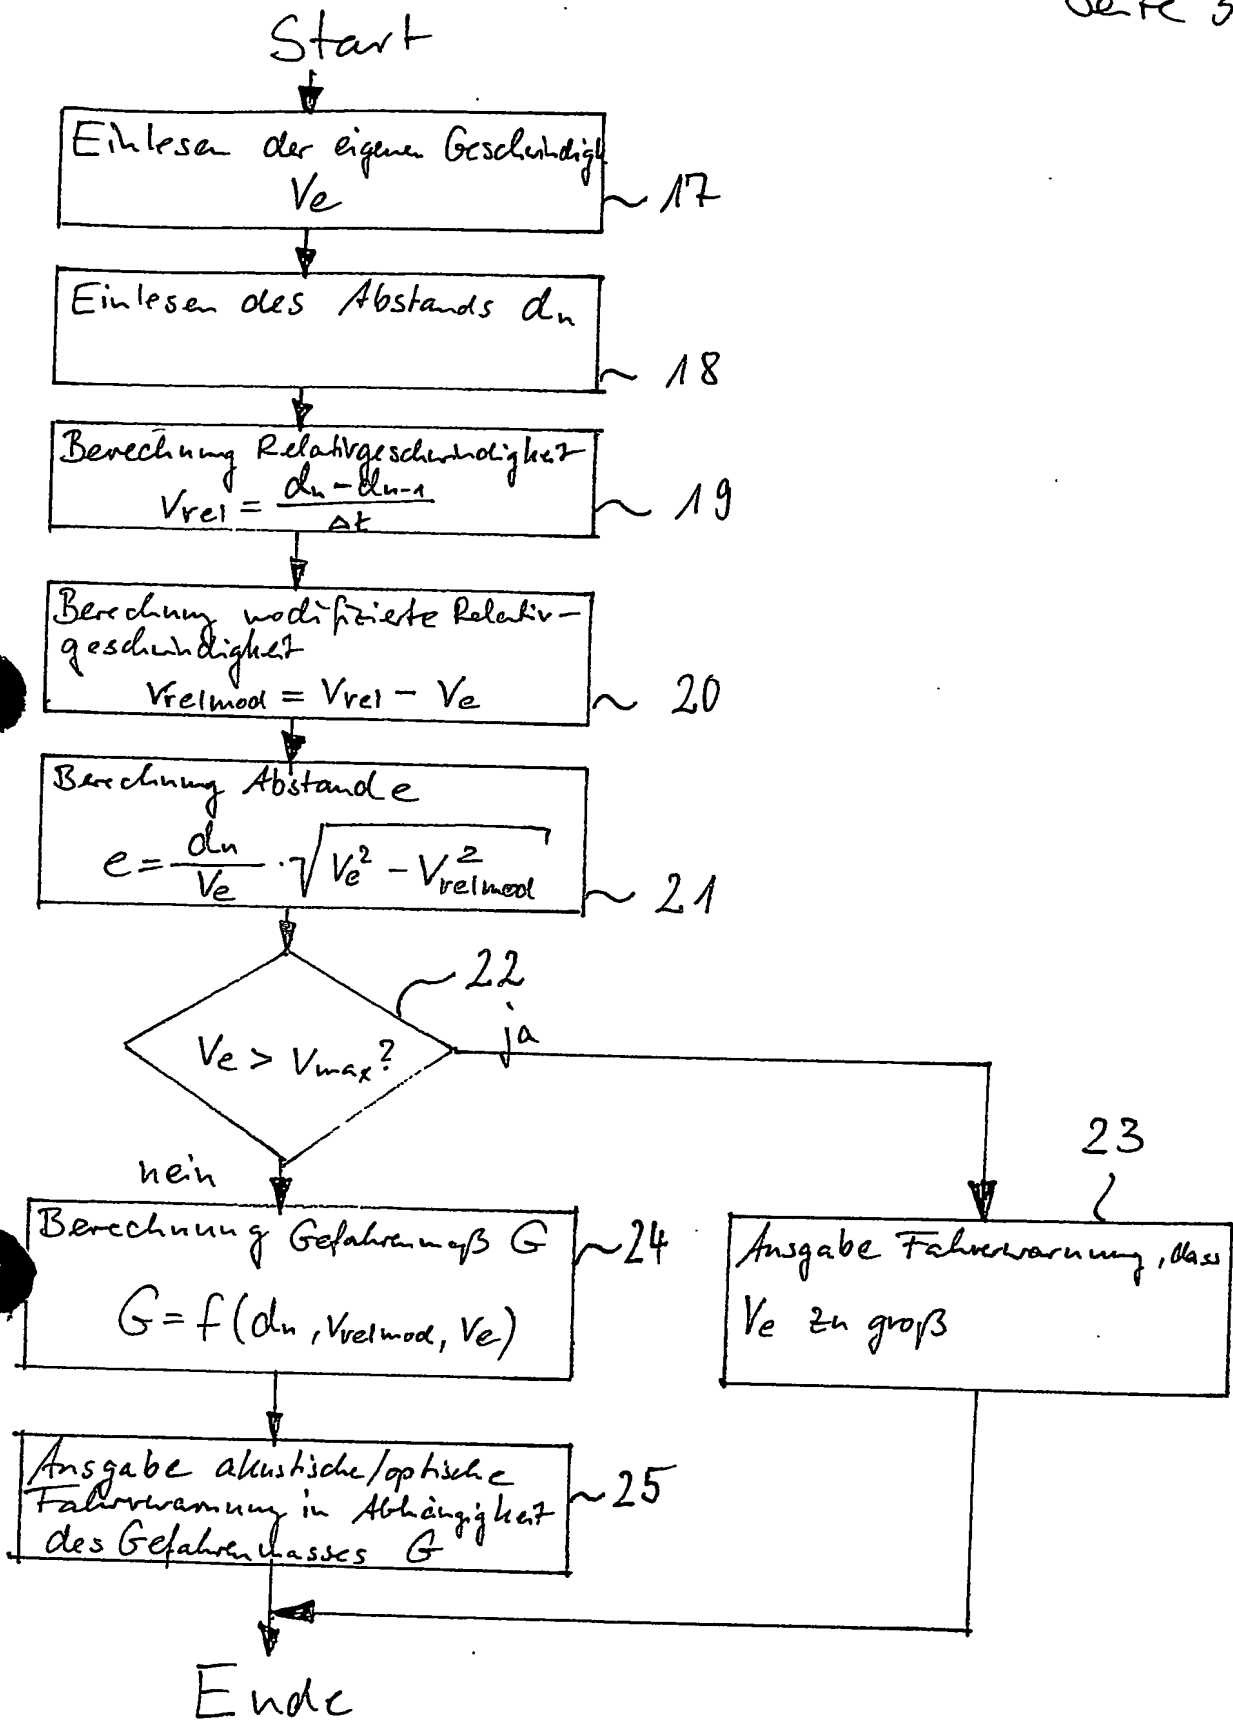 Seite 3
Start
Einlesen der eigenen Geschwindigk
Ve
17
Einlesen des Abstands dn
18
Berechnung Relativgeschwindigkeit
Vrel = (dn - dn-1) / Δt
19
Berechnung modifizierte Relativ-
geschwindigkeit
Vrelmod = Vrel - Ve
20
Berechnung Abstand e
e = dn / Ve · √(Ve² - V²relmod)
21
22
Ve > Vmax?
ja
nein
23
Berechnung Gefahrenmaß G
G = f(dn, Vrelmod, Ve)
24
Ausgabe Fahrerwarnung, dass
Ve zu groß
Ausgabe akustische/optische
Fahrerwarnung in Abhängigkeit
des Gefahrenmasses G
25
Ende